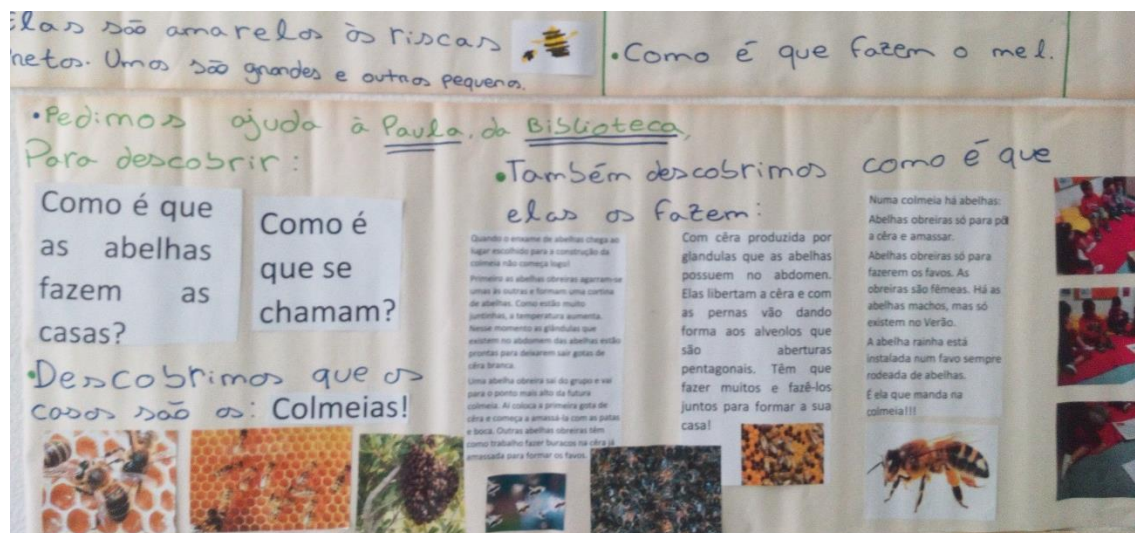 Elas são amarelas às riscas
netas. Umas são grandes e outras pequenas.
•Como é que fazem o mel.
•Pedimos ajuda à Paula, da Biblioteca,
Para descobrir:
Como é que
as abelhas
fazem as
casas?
Como é
que se
chamam?
•Descobrimos que as
casas são as: Colmeias!
•Também descobrimos como é que
elas as fazem:
Quando o enxame de abelhas chega ao
lugar escolhido para a construção da
colmeia não começa logo!
Primeiro as abelhas obreiras agarram-se
umas às outras e formam uma cortina
de abelhas. Como estão muito
juntinhas, a temperatura aumenta.
Nesse momento as glândulas que
existem no abdomen das abelhas estão
prontas para deixarem sair gotas de
cêra branca.
Uma abelha obreira sai do grupo e vai
para o ponto mais alto da futura
colmeia. Aí coloca a primeira gota de
cêra e começa a amassá-la com as patas
e boca. Outras abelhas obreiras têm
como trabalho fazer buracos na cêra já
amassada para formar os favos.
Com cêra produzida por
glandulas que as abelhas
possuem no abdomen.
Elas libertam a cêra e com
as pernas vão dando
forma aos alveolos que
são aberturas
pentagonais. Têm que
fazer muitos e fazê-los
juntos para formar a sua
casa!
Numa colmeia há abelhas:
Abelhas obreiras só para pôr
a cêra e amassar.
Abelhas obreiras só para
fazerem os favos. As
obreiras são fêmeas. Há as
abelhas machos, mas só
existem no Verão.
A abelha rainha está
instalada num favo sempre
rodeada de abelhas.
É ela que manda na
colmeia!!!